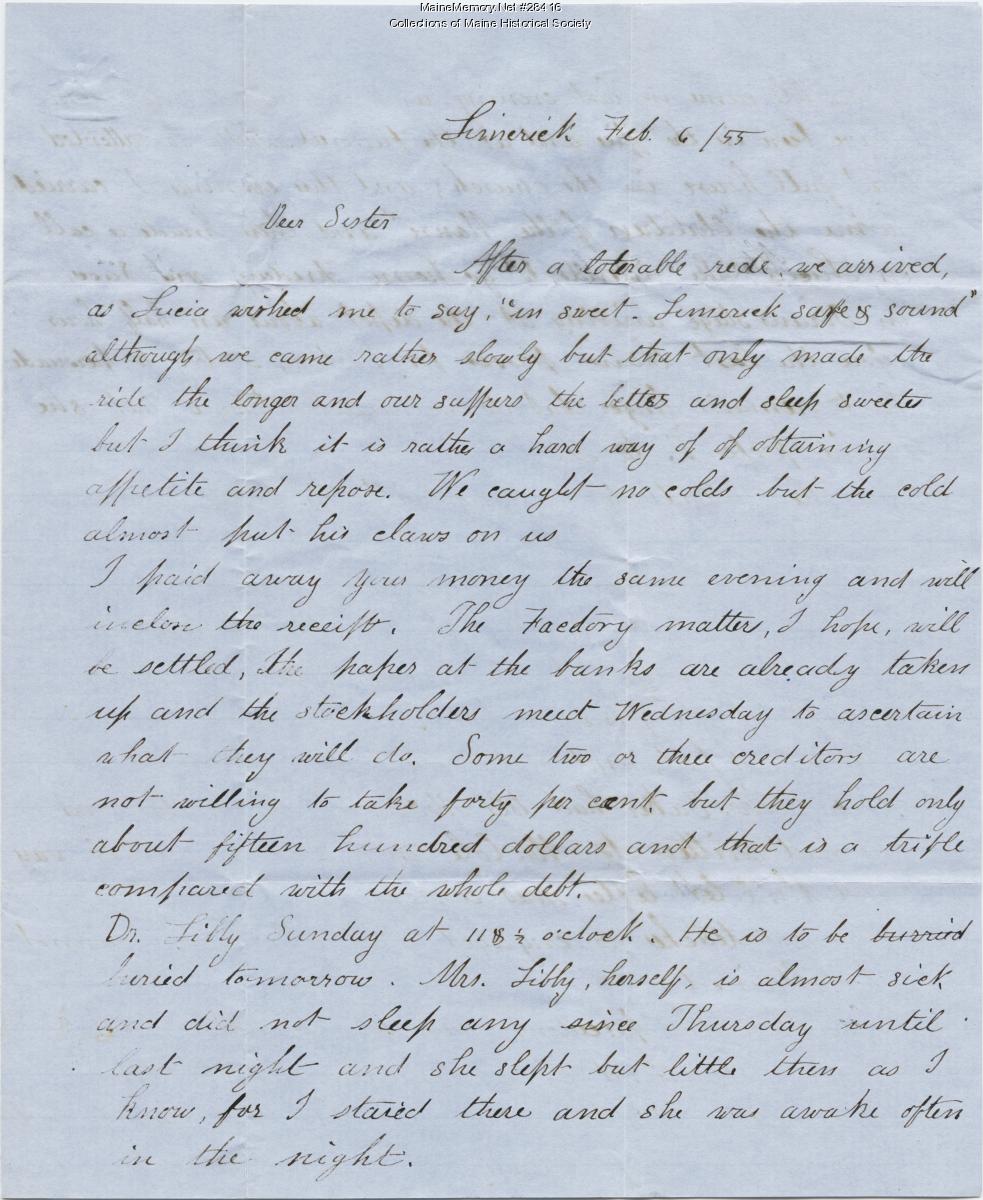 MaineMemory.Net #28416
Collections of Maine Historical Society
Limerick Feb. 6 /55
Deer Sister
After a lotorable ride, we arrived,
as Lucia wished me to say, "in sweet. Limerick safe & sound"
although we came rather slowly but that only made the
ride the longer and our suppers the better and sleep sweeter
but I think it is rather a hard way of of obtaining
appetite and repose. We caught no colds but the cold
almost put his claws on us
I paid away your money the same evening and will
inclose the receipt. The Factory matters, I hope, will
be settled, the paper at the banks are already taken
up and the stockholders meet Wednesday to ascertain
what they will do. Some two or three creditors are
not willing to take forty per cent. but they hold only
about fifteen hundred dollars and that is a trifle
compared with the whole debt.
Dr. Libby Sunday at 11 & ½ o'clock. He is to be burried
buried tomorrow. Mrs. Libby, herself, is almost sick
and did not sleep any since Thursday until
last night and she slept but little then as I
know, for I staied there and she was awake often
in the night.